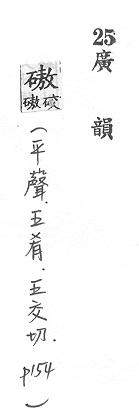 25廣韻
磝
(平聲.五肴.五交切.p154)